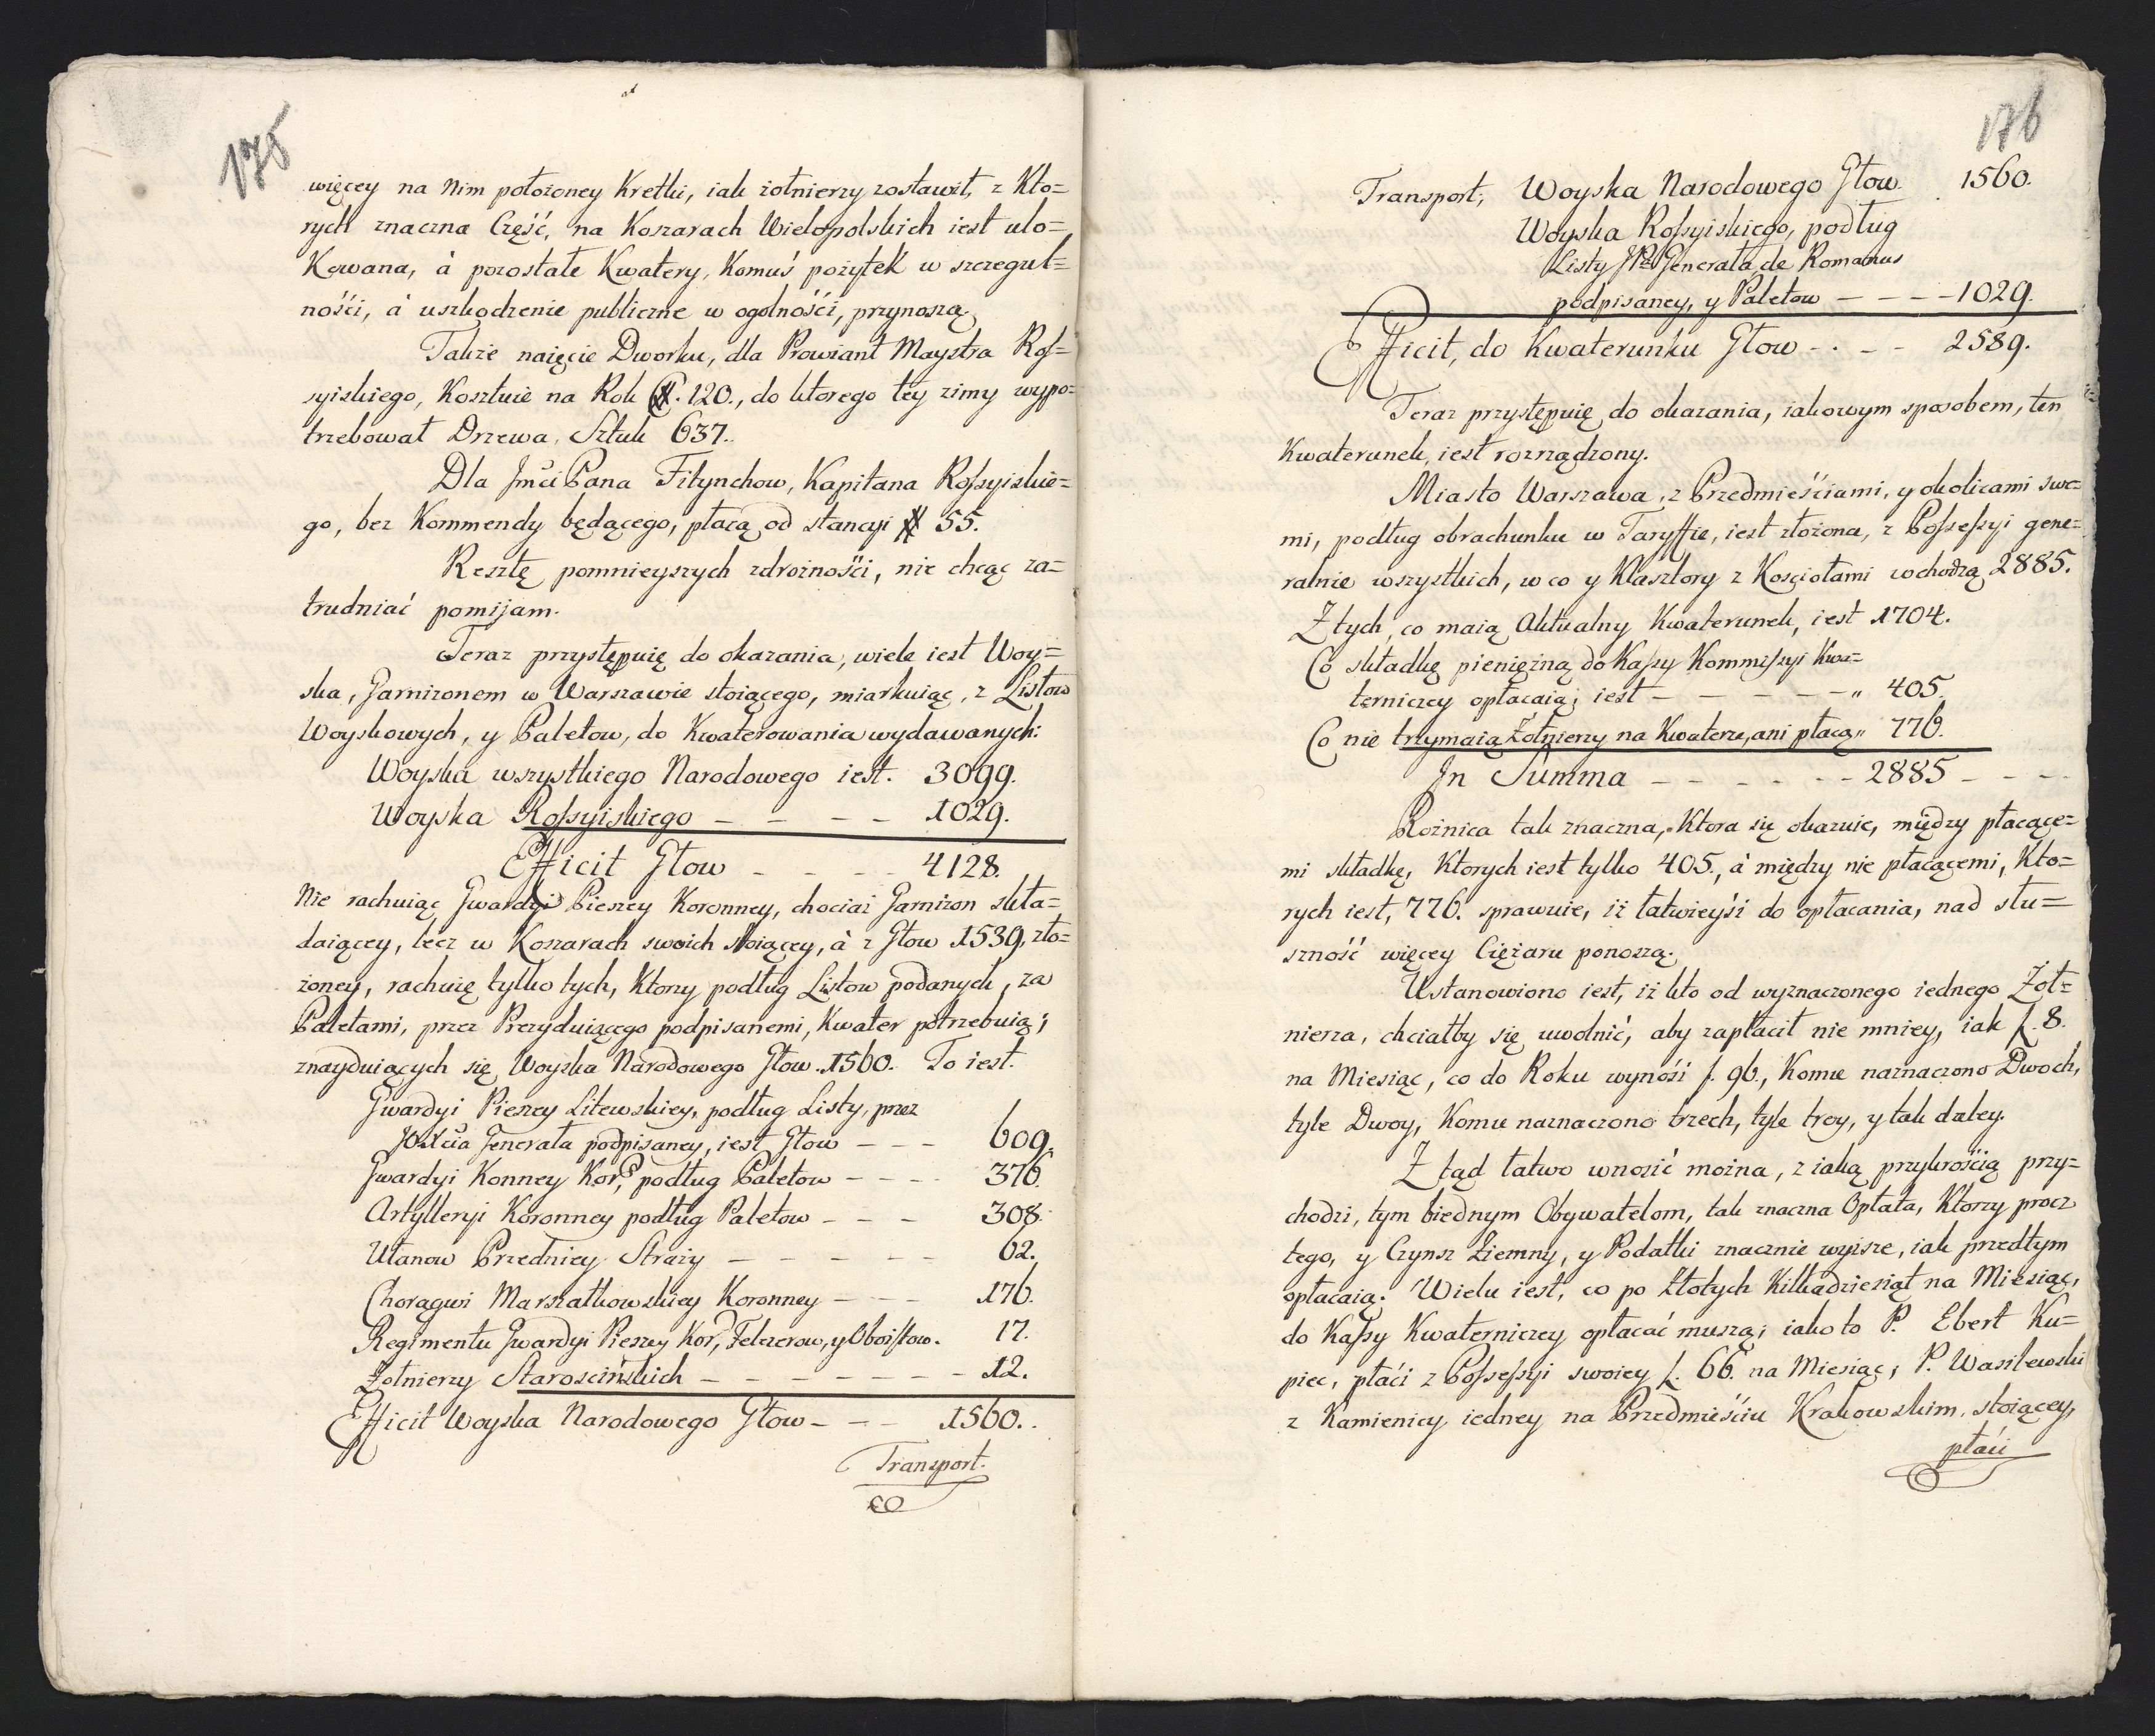 175
więcey na Nim położoney Kretki, iak żołnierzy zostawił, z Kto=
rych znaczna Część, na Koszarach Wielopolskich iest ulo=
Kowana, à pozostałe Kwatery, Komuś pożytek w szczegul=
ności, à uszkodzenie publiczne w ogolności, przynoszą.
Także naięcie Dworku, dla Prowiant Maystra Ros=
syiskiego, Kosztuie na Rok #. 120., do ktorego tey zimy wypo=
trzebował Drzewa, Sztuk 637.
Dla Jmci Pana Fitynchow, Kapitana Rossyiskie=
go, bez Kommendy będącego, płacą od stancyi # 55.
Resztę pomnieyszych zdrożności, nie chcąc za=
trudniać pomijam.
Teraz przystępuię do okazania, wiele iest Woy=
ska, Garnizonem w Warszawie stoiącego, miarkuiąc, z Listow
Woyskowych, y Paletow, do Kwaterowania wydawanych:
Woyska wszystkiego Narodowego iest. 3099.
Woyska Rossyiskiego – – – – 1029.
Efficit Głow – – – – 4128.
Nie rachuiąc Gwardyi Pieszey Koronney, chociaż Garnizon skła=
daiącey, lecz w Koszarach swoich stoiącey, à z Głow 1539. zło=
żoney, rachuię tylko tych, Ktorzy podług Listow podanych, za
Paletami, przez Prezyduiącego podpisanemi, Kwater potrzebuią;
znayduiących się Woyska Narodowego Głow. 1560. To iest.
Gwardyi Pieszey Litewskiey, podług Listy, przez
JOXcia Generała podpisaney, iest Głow – – – 609.
Gwardyi Konney Kor, podług Paletow – – – – 376.
Artylleryi Koronney podług Paletow – – – 308.
Ułanow Przedniey Straży – – – – – 62.
Chorągwi Marszałkowskiey Koronney – – – 176.
Regimentu Gwardyi Pieszey Kor, Felczerow, y Oboistow. 17.
Żołnierzy Starościńskich – – – – – – – 12.
Efficit Woyska Narodowego Głow – – – 1560.
Transport.
176
Transport, Woyska Narodowego Głow. 1560.
Woyska Rossyiskiego, podług
Listy JP Generała de Romanus
podpisaney, y Paletow – – – – 1029.
Efficit, do Kwaterunku Głow – . – – 2589.
Teraz przystępuię do okazania, iakowym sposobem, ten
Kwaterunek, iest rozrządzony.
Miasto Warszawa, z Przedmieściami, y okolicami swe=
mi, podług obrachunku w Taryffie, iest złożona, z Possessyi gene=
ralnie wszystkich, w co y Klasztory z Kosciołami wchodzą 2885.
Z tych, co maią Aktualny Kwaterunek, iest 1704.
Co składkę pieniężną do Kassy Kommissyi Kwa=
terniczey opłacaią; iest – – – – – „ 405.
Co nie trzymaią Żołnierzy na Kwaterze, ani płacą „ 776.
In Summa – – – – – – 2885 – – – –
Rożnica tak znaczna, Ktora się okazuie, między płacące=
mi składkę, Ktorych iest tylko 405., à między nie płacącemi, Kto=
rych iest, 776. sprawuie, iż łatwieyśi do opłacania, nad słu=
szność więcey Ciężaru ponoszą.
Ustanowiono iest, iż kto od wyznaczonego iednego Żoł=
nierza, chciałby się uwolnić, aby zapłacił nie mniey, iak f. 8.
na Miesiąc, co do Roku wynośi f. 96., Komu naznaczono Dwoch,
tyle Dwoy, Komu naznaczono trzech, tyle troy, y tak daley.
Z tąd łatwo wnosić można, z iaką przykrością przy=
chodzi, tym biednym Obywatelom, tak znaczna Opłata, Ktorzy procz
tego, y Czynsz Ziemny, y Podatki znacznie wyższe, iak przedtym
opłacaią. Wielu iest, co po Złotych Kilkadziesiąt na Miesiąc,
do Kassy Kwaterniczey opłacać muszą; iako to P. Ebert Ku=
piec, płaci z Possessyi swoiey f. 66. na Miesiąc, P. Wasilewski
z Kamienicy iedney na Przedmieściu Krakowskim, stoiącey,
płaci